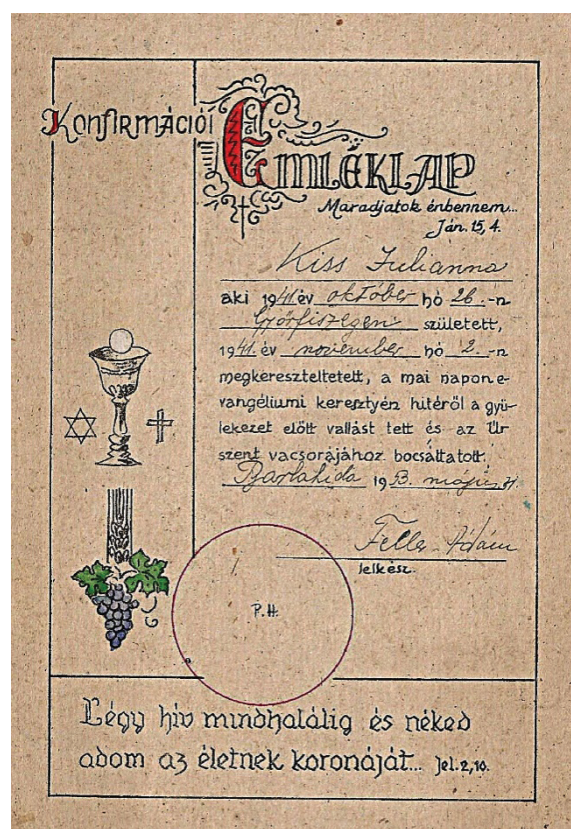 Konfirmációi
Emléklap
Maradjatok énbennem...
Ján. 15, 4.
Kiss Julianna
aki 1941 év október hó 26.-n
Győrfiszegen született,
1941. év november hó 2.-n
megkereszteltetett, a mai napon e-
vangéliumi keresztyén hitéről a gyü-
lekezet előtt vallást tett és az Úr
szent vacsorájához bocsáttatott.
Barlahida 1953. május
Felle Ádám
lelkész.
P.H.
Légy hív mindhalálig és néked
adom az életnek koronáját... Jel. 2, 10.